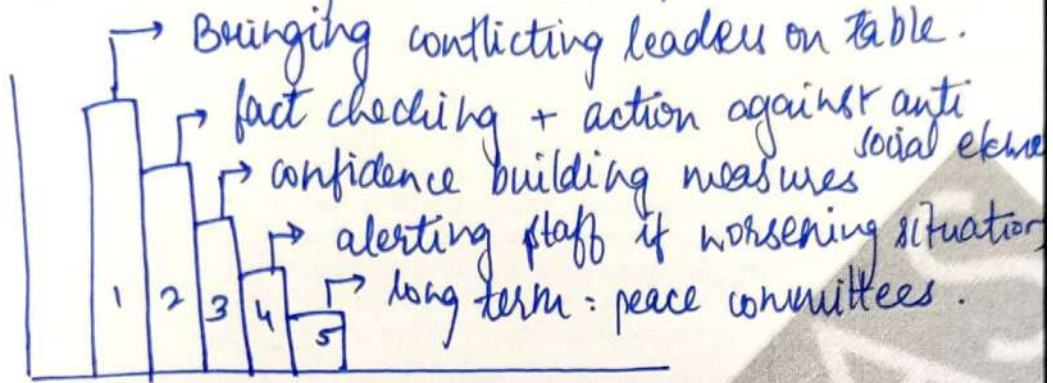 Bringing conflicting leaders on table.
fact checking + action against anti
social
confidence building measures
alerting staff if worsening situation
long term: peace committees.
1 2 3 4 5